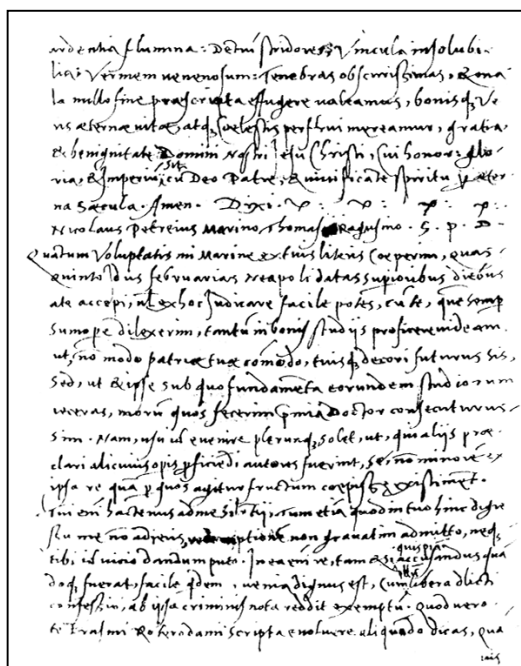 ardentia flumina: Dentiũ stridores, & Vincula insolubi-
lia: Vermem venenosum: Tenebras obscurissimas, & ona
la nullo fine præscripta effugere valeamus, bonisq, Ve
ris æternæ vitæ, atq, Cœlestis perfrui mereamur, gratia
& benignitate Domini Nostri Jesu Christi, Cui honor: glo
ria, & Imperiũ sit cũ Deo Patre, & vivificante spiritu
na Sæcula. Amen. Dixi.
Nicolaus Petreius Marino Thomasi Ragusino. S. P. D.
Quãtum Voluptatis mi Marine ex tuis literis cœperim, quas
quinto Idus februarias Neapoli datas supioribus diebus
a te accepi, vel ex hoc Judicare facile potes, cũ te, quẽ semp
sumope dilexerim, tantũ in bonis studijs proficere videam
ut, nõ modo patriæ tuæ cõmodo, tuisq, decori futurus sis,
Sed, ut & ipse sub quo fundamẽta eorundem studiorum
ieceras, morũ quos fecerim p̃mia Doctor consecuturus
sim. Nam, usu id evenire plerunq, solet, ut, qui alijs præ
clari alicuius opis pficiẽdi, autores fuerint, Se, nõ minorẽ ex
ipsa re quã p quos agitur fructum cœpisse existiment.
Tui enĩ hactenus ad me silẽtij, tum etiã quod in tuo hinc digre
ssu me nõ adieris, non gravatim admitto, neq,
tibi id vicio dandum puto. In ea enĩ re, tam & si quispiã accusandus quã
doq, fuerat, facile qdem venia dignus est, Cum libera dlicti
confessio, ab ipsa criminis nota reddit exemptũ. Quod vero
te Erasmi Roterodami scripta evoluere aliquando dicas, qua